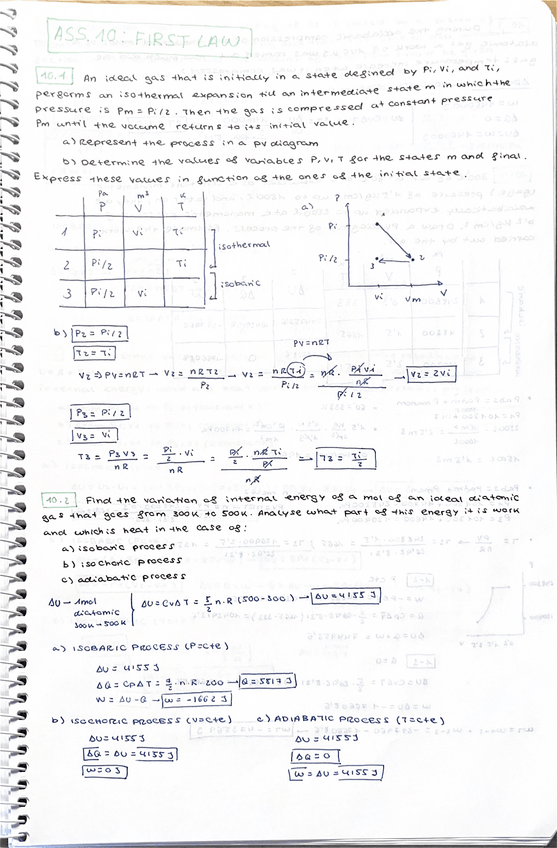 ASS. 10: FIRST LAW
10.1 An ideal gas that is initially in a state defined by Pi, Vi, and Ti,
performs an isothermal expansion till an intermediate state m in which the
pressure is Pm = Pi/2. Then the gas is compressed at constant pressure
Pm until the volume returns to its initial value.
a) Represent the process in a pv diagram
b) Determine the values of variables P, V, T for the states m and final.
Express these values in function of the ones of the initial state.
Pa m³ K
P V T
1 Pi Vi Ti
2 Pi/2 Ti
3 Pi/2 Vi
isothermal
isobaric
a) P
Pi 1
Pi/2 3 2
Vi Vm V
b) P2 = Pi/2
T2 = Ti
PV=nRT
V2 ⇒ PV=nRT → V2 = nRT2/P2 → V2 = nRTi/Pi/2 = nR · PiVi/nR/Pi/2 → V2 = 2Vi
P3 = Pi/2
V3 = Vi
T3 = P3V3/nR = Pi/2 · Vi/nR = Pi/2 · nRTi/Pi/nR → T3 = Ti/2
10.2 Find the variation of internal energy of a mol of an ideal diatomic
gas that goes from 300K to 500K. Analyse what part of this energy it is work
and which is heat in the case of:
a) isobaric process
b) isochoric process
c) adiabatic process
ΔU → 1mol
diatomic
300K → 500K
ΔU = CvΔT = 5/2 n·R (500-300) → ΔU = 4155 J
a) ISOBARIC PROCESS (P=cte)
ΔU = 4155 J
ΔQ = CpΔT = 7/2 · n·R·200 → Q = 5817 J
W = ΔU - Q → W = -1662 J
b) ISOCHORIC PROCESS (V=cte) c) ADIABATIC PROCESS (T=cte)
ΔU = 4155 J ΔU = 4155 J
ΔQ = ΔU = 4155 J ΔQ = 0
W = 0 J W = ΔU = 4155 J